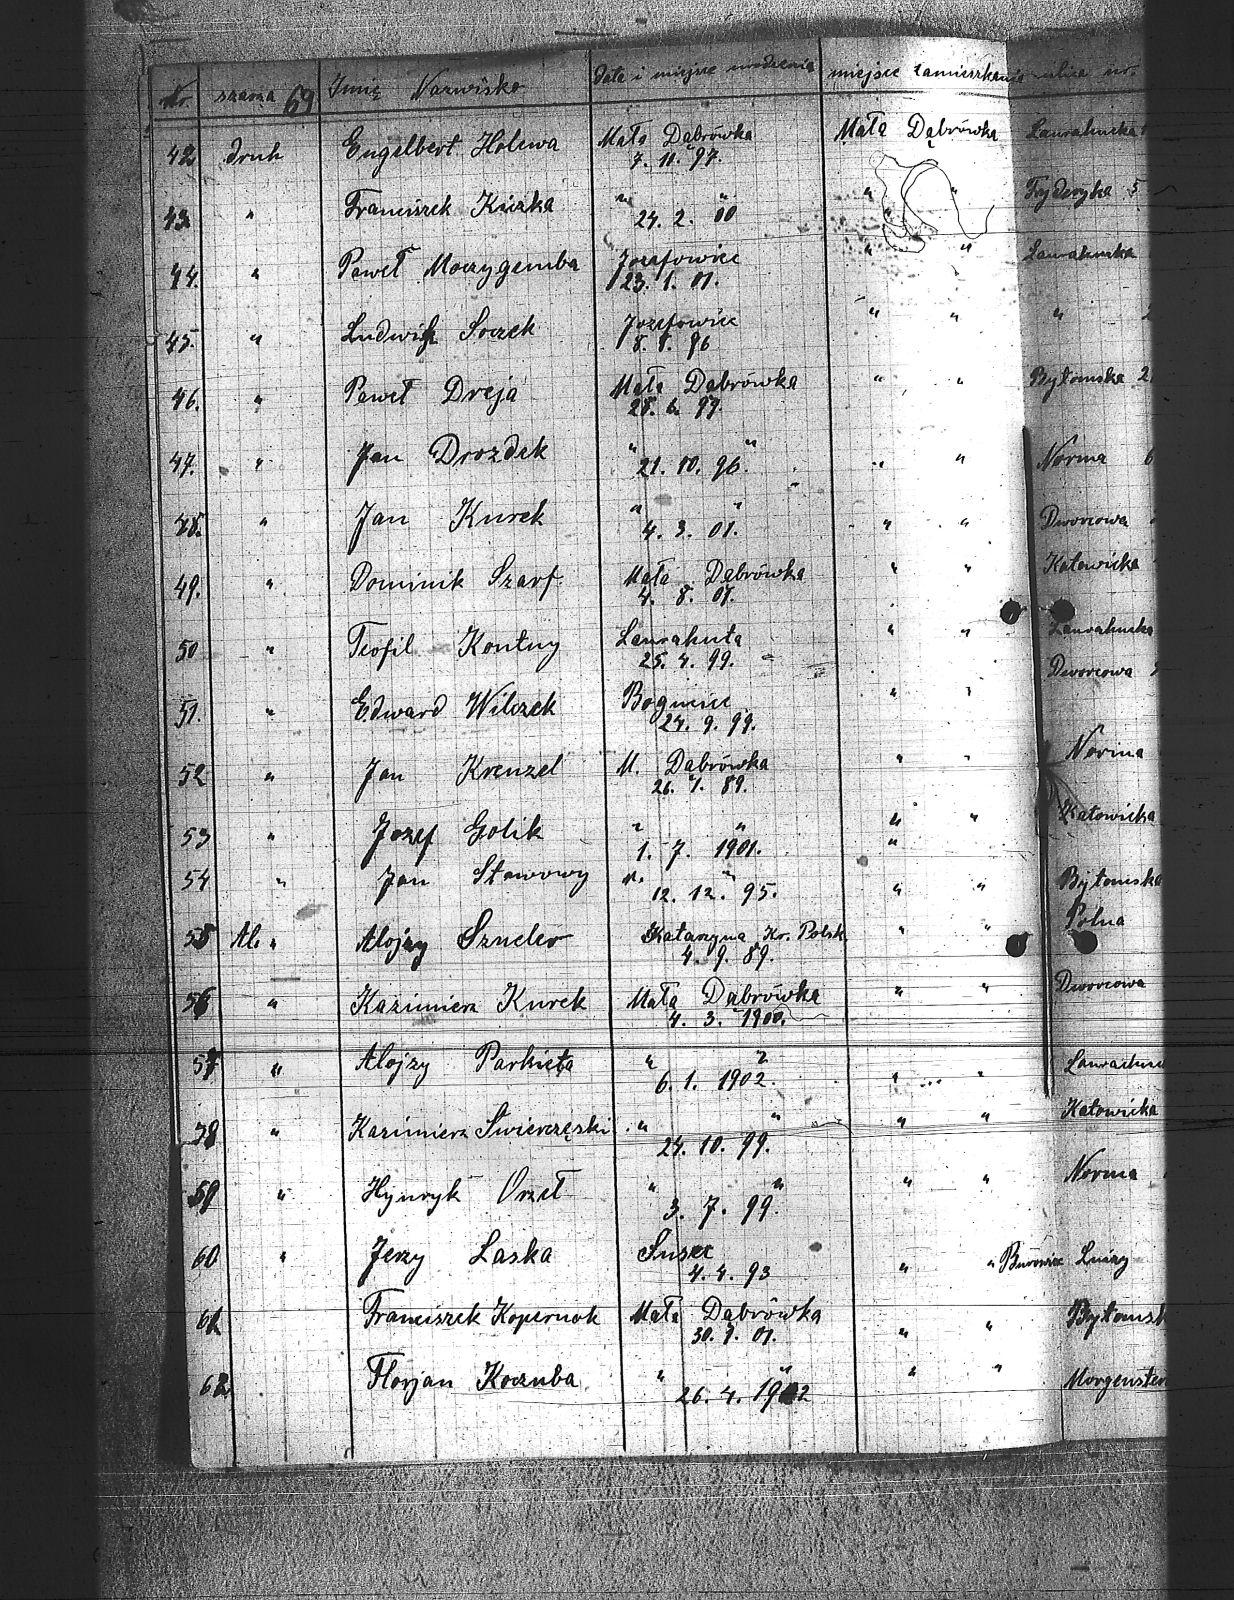 Nr. szarża 69 Imię Nazwisko data i miejsce urodzenia miejsce zamieszkania ulica nr.
42 druh Engelbert Holewa Mała Dąbrówka Mała Dąbrówka Laurahucka
7. 11. 97.
43 " Franciszek Kiczka " " " " Fryderyka 5
24. 2. 00
44. " Paweł Moczygemba Jozefowiec " " Laurahucka
23. 1. 01.
45. " Ludwik Soczek Jozefowiec " " "
8. 8. 96
46. " Paweł Dreja Mała Dąbrówka " " Bytomska 2
28. 6. 99.
47. " Jan Drozdek " " " " Norma 6
21. 10. 96.
48. " Jan Kurek " " " " Dworcowa
4. 3. 01.
49. " Dominik Szarf Mała Dąbrówka " " Katowicka
4. 8. 01.
50 " Teofil Kontny Laurahuta " " Laurahucka
25. 4. 99.
51. " Edward Wilczek Bogucice " " Dworcowa
24. 9. 99.
52 " Jan Krenzel M. Dąbrówka " " Norma
26. 1. 89.
53 " Jozef Golik " " " " Katowicka
1. 7. 1901.
54 " Jan Stawowy " " " " Bytomska
12. 12. 95.
55 " Alojzy Szneler Katarzyna Kr. Polsk. " " Polna
4. 9. 89.
56 " Kazimierz Kurek Mała Dąbrówka " " Dworcowa
4. 3. 1900.
57 " Alojzy Parkieta " " " "
6. 1. 1902.
58 " Kazimierz Świerczęski " " " " Katowicka
24. 10. 99.
59 " Hynryk Orzeł " " " " Norma
3. 7. 99.
60 " Jerzy Laska Susec " " Burowiec
4. 4. 93
61 " Franciszek Kopernok Mała Dąbrówka " "
30. 1. 01.
62 Florjan Koczuba " " " "
26. 4. 1902